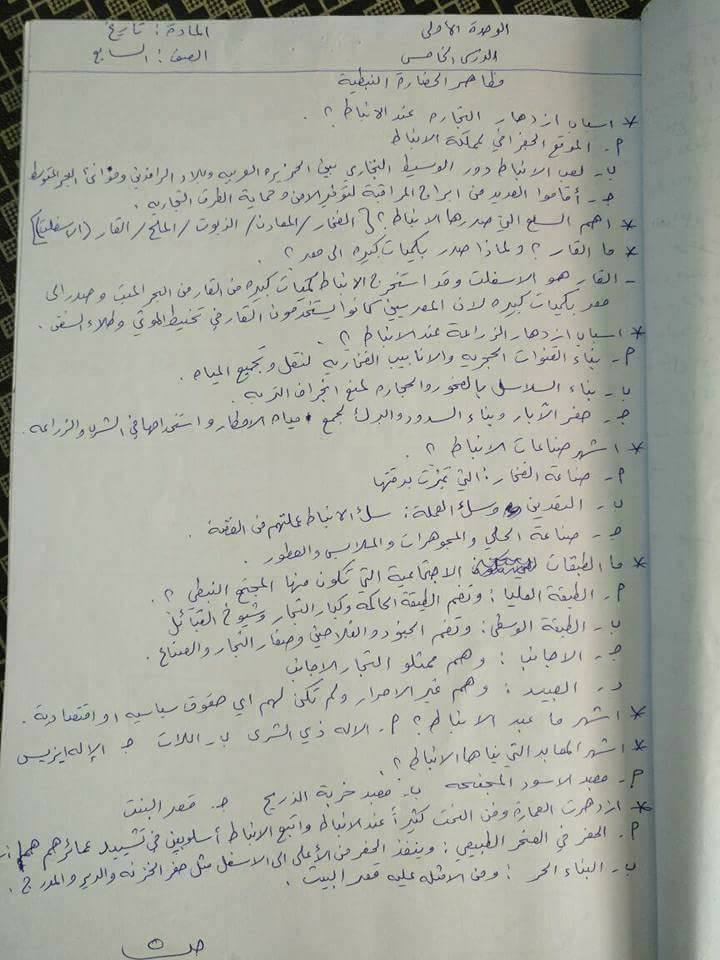 الوحدة الأولى المادة : تاريخ
الدرس الخامس الصف : السابع
مظاهر الحضارة النبطية
* اسباب ازدهار التجاره عند الانباط ؟
أ- الموقع الجغرافي لمملكة الانباط
ب- لعب الانباط دور الوسيط التجاري بين الجزيره العربيه وبلاد الرافدين وموانئ البحر المتوسط
جـ- أقاموا العديد من ابراج المراقبة لتوفير الامن وحماية الطرق التجاريه .
* اهم السلع التي صدرها الانباط ؟ { الفخار / المعادن / الزيوت / الملح / القار (الاسفلت) }
* ما القار ؟ ولماذا صدر بكميات كبيره الى مصر ؟
- القار هو الاسفلت وقد استخرج الانباط كميات كبيره من القار من البحر الميت وصدر الى
مصر بكميات كبيره لان المصريين كانوا يستخدمون القار في تحنيط الموتى وطلاء السفن .
* اسباب ازدهار الزراعة عند الانباط ؟
أ- بناء القنوات الحجريه والانابيب الفخاريه لنقل وتجميع المياه .
ب- بناء السلاسل بالصخور والحجاره لمنع انجراف التربه .
جـ- حفر الآبار وبناء السدود والبرك لجمع مياه الامطار واستخدامها في الشرب والزراعه .
* اشهر صناعات الانباط ؟
أ- صناعة الفخار : التي تميزت بدقتها
ب- التعدين وسك العملة : سك الانباط عملتهم من الفضة
جـ- صناعة الحلي والمجوهرات والملابس والعطور .
* ما الطبقات الاجتماعية التي تكون منها المجتمع النبطي ؟
أ- الطبقة العليا : وتضم الطبقة الحاكمه وكبار التجار وشيوخ القبائل
ب- الطبقة الوسطى : وتضم الجنود والفلاحين وصغار التجار والصناع .
جـ- الاجانب : وهم ممثلو التجار الاجانب
د- العبيد : وهم غير الاحرار ولم تكن لهم اي حقوق سياسيه او اقتصادية .
* اشهر ما عبد الانباط ؟ أ- الاله ذي الشرى ب- اللات جـ- الإله ايزيس
* اشهر المعابد التي بناها الانباط ؟
أ- معبد الاسود المجنحه ب- معبد خربة الذريح جـ- قصر البنت
* ازدهرت العمارة وفن النحت كثيراً عند الانباط واتبع الانباط أسلوبين في تشييد عمائرهم هما :
أ- الحفر في الصخر الطبيعي : وينفذ الحفر من الأعلى الى الاسفل مثل حفر الخزنه والدير والمدرج .
ب- البناء الحر : ومن الامثله عليه قصر البنت .